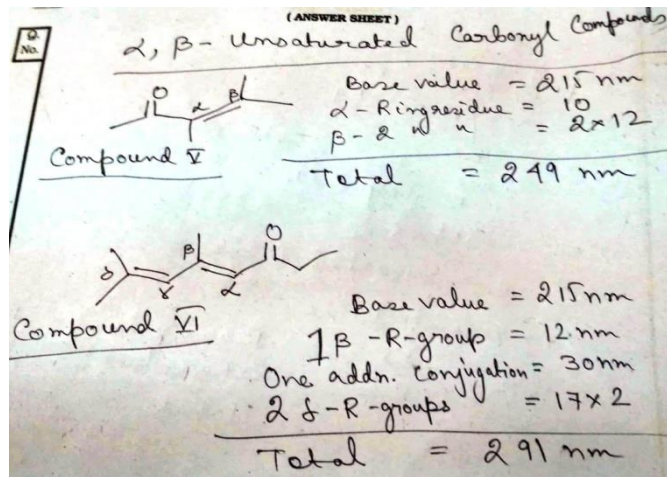 (ANSWER SHEET)
Q. No.
α, β - Unsaturated Carbonyl Compounds
O
α
β
Base value = 215 nm
α - Ringresidue = 10
β - 2 " " = 2×12
Compound V
Total = 249 nm
O
δ
γ
β
α
Compound VI
Base value = 215 nm
1 β - R-group = 12 nm
One addn. Conjugation = 30 nm
2 δ - R - groups = 17×2
Total = 291 nm